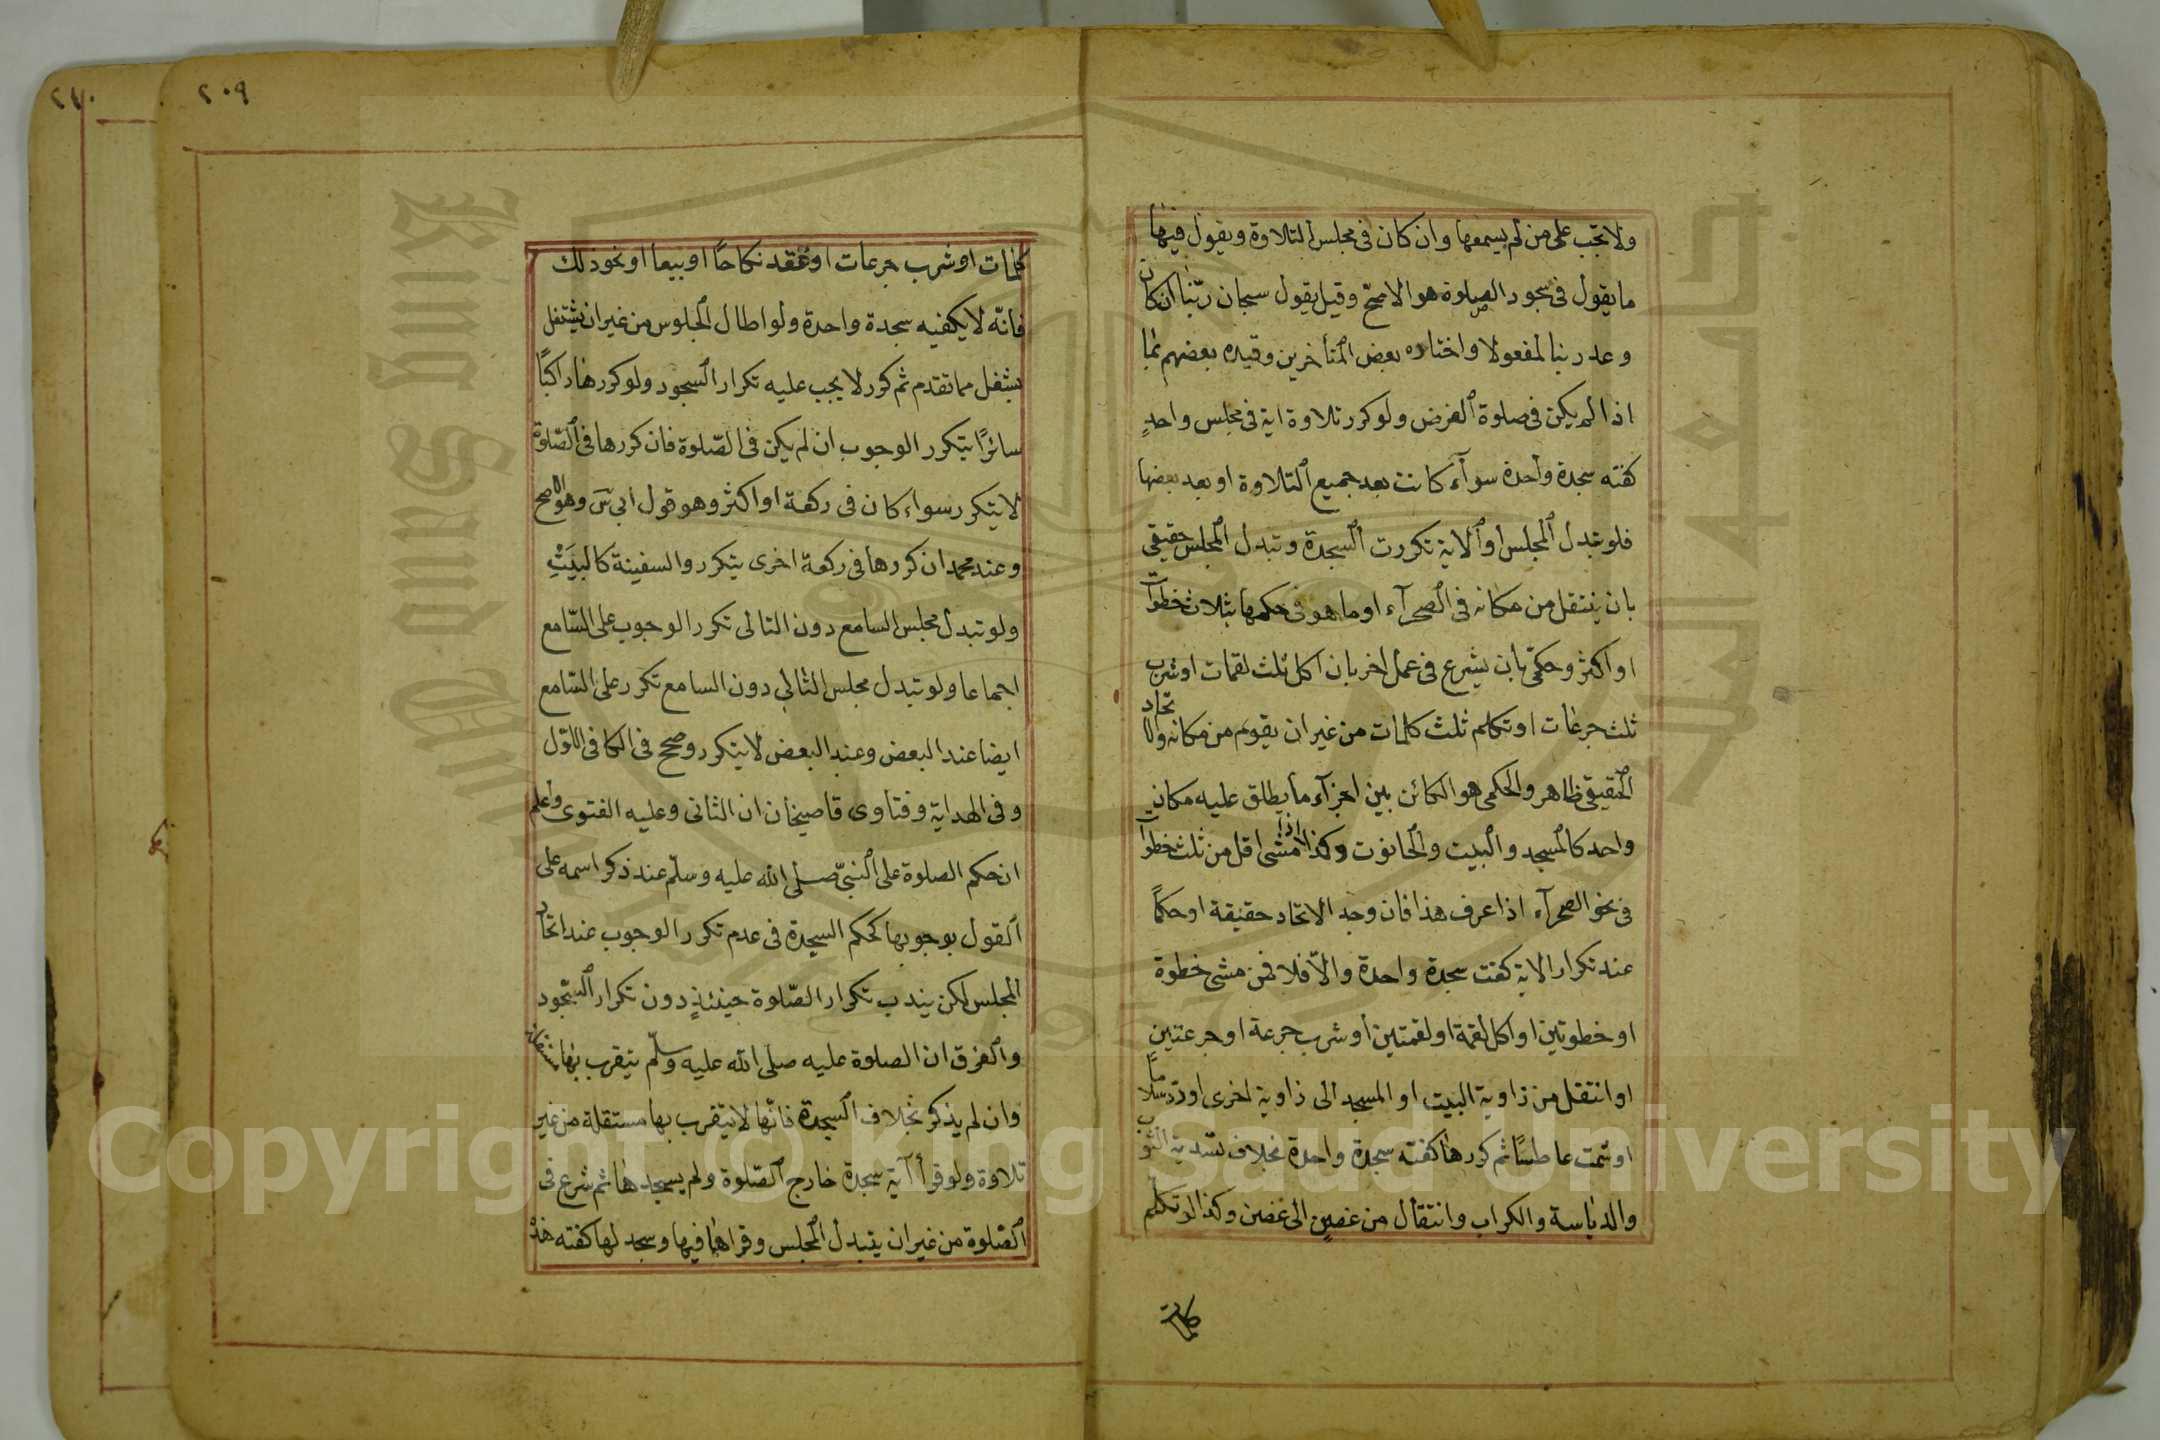 ولا تجب على من لم يسمعها وان كان فى مجلس التلاوة ويقول فيها
ما يقول فى سجود الصلوة هو الاصح وقيل يقول سبحان ربنا ان كان
وعد ربنا لمفعولا واختاره بعض المتأخرين وقيده بعضهم بما
اذا لم يكن فى صلوة الفرض ولو كرر تلاوة اية فى مجلس واحدٍ
كفته سجدة واحدة سوآء كانت بعد جميع التلاوة او بعد بعضها
فلو تبدل المجلس او الاية تكررت السجدة وتبدل المجلس حقيقى
بان ينتقل من مكانه فى الصحرآء او ما هو فى حكمها بثلاث خطوآت
او اكثر وحكمّى بان يشرع فى عمل اخر بان اكل ثلث لقمات او شرب
ثلث جرعات او تكلم ثلث كلمات من غير ان يقوم من مكانه والاتحاد
الحقيقى ظاهر والحكمى هو الكائن بين اجزآء ما يطلق عليه مكان
واحد كالمسجد والبيت والحانوت وكذا اذا مشى اقل من ثلث خطوات
فى نحو الصحرآء اذا عرف هذا فان وجد الاتحاد حقيقة او حكمًا
عند تكرار الاية كفت سجدة واحدة والّا فلا فمن مشى خطوة
او خطوتين او اكل لقمة او لقمتين او شرب جرعة او جرعتين
او انتقل من زاوية البيت او المسجد الى زاوية اخرى او ردّ سلامًا
او شمت عاطسًا ثم كررها كفته سجدة واحدة بخلاف تسدية الثوب
والدياسة والكراب وانتقال من غصنٍ الى غصن وكذا لو تكلم
كلمات
٢٠٩
٢١٠
كلمات او شرب جرعات او عقد نكاحًا او بيعا او نحو ذلك
فانّه لا يكفيه سجدة واحدة ولو اطال الجلوس من غير ان يشتغل
بشغل مما تقدم ثم كرر لا يجب عليه تكرار السجود ولو كررها راكبًا
سائرًا يتكرر الوجوب ان لم يكن فى الصّلوة فان كررها فى الصّلوة
لا يتكرر سواء كان فى ركعة او اكثر وهو قول ابى سَ وهو الاصح
وعند محمد ان كررها فى ركعة اخرى يتكرر والسفينة كالبَيْتِ
ولو تبدل مجلس السامع دون التالى تكرر الوجوب على السّامع
اجماعا ولو تبدل مجلس التالى دون السامع تكرر على السّامع
ايضا عند البعض وعند البعض لا يتكرر وصحح فى الكافى الاوّل
وفى الهداية وفتاوى قاضيخان ان الثانى وعليه الفتوى واعلم
ان حكم الصلوة على النبىّ صلى الله عليه وسلّم عند ذكر اسمه على
القول بوجوبها كحكم السجدة فى عدم تكرر الوجوب عند اتحاد
المجلس لكن يندب تكرار الصّلوة حينئذٍ دون تكرار السّجود
والفرق ان الصلوة عليه صلى الله عليه وسلّم يتقرب بها مستقلة
وان لم يذكر بخلاف السجدة فانّها لا يتقرب بها مستقلة من غير
تلاوة ولو قرأ آية سجدة خارج الصّلوة ولم يسجد لها ثم شرع فى
الصّلوة من غير ان يتبدل المجلس وقراها فيها وسجد لها كفته هذه
King Saud University
Copyright © King Saud University